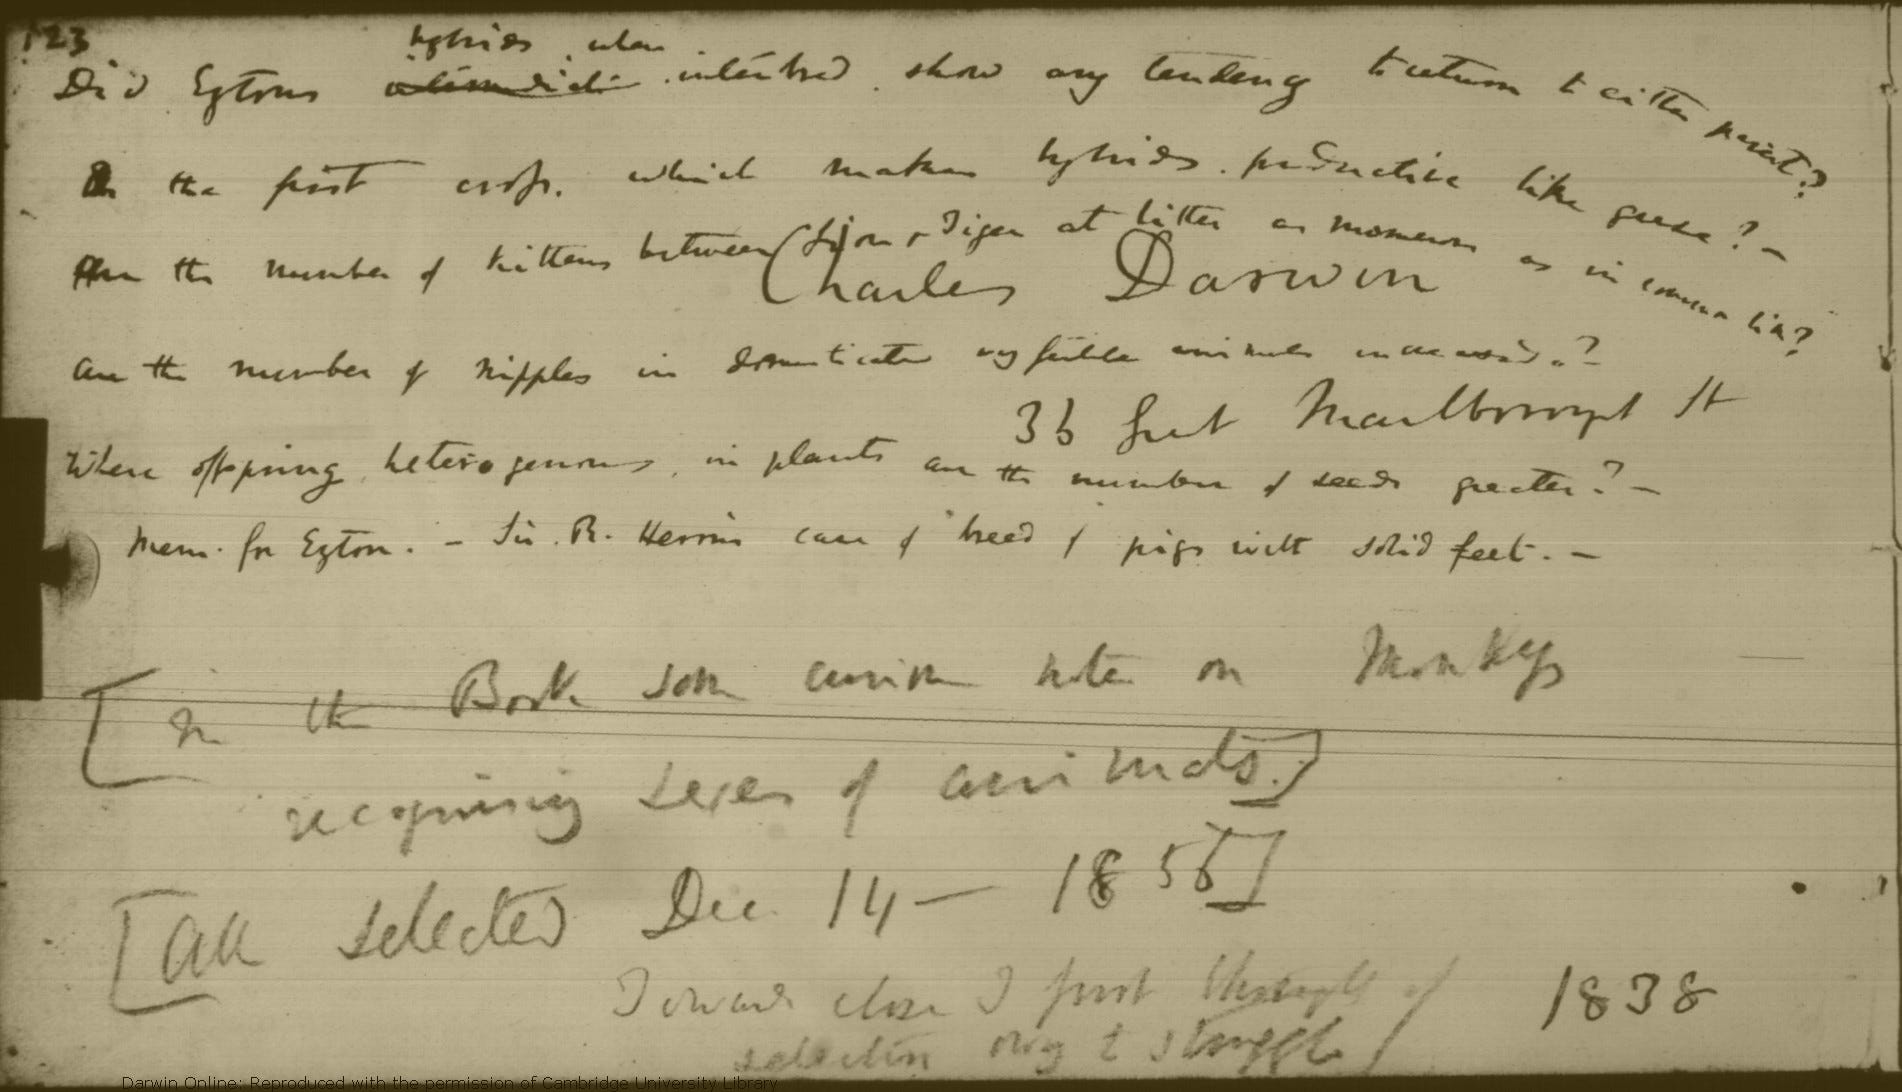 123
hybrids when
Did Eytons intermediate interbred. show any tendency to return to either parent?
Is the first cross. which makes hybrids. productive like geese? —
Are the number of kittens between Lion & Tiger at litter as numerous as in common lion?
Charles Darwin
are the number of nipples in domesticated very fertile animals increased.? —
36 Great Marlborough St
Where offspring heterogenous, in plants are the number of seeds greater? —
Mem. for Eyton. — Sir. R. Heron's case of breed of pigs with solid feet. —
[In the Book some curious notes on Monkeys
recognising sexes of animals.]
[All selected Dec 14 — 1856]
Towards close I first thought of
1838
selection owing to struggle
Darwin Online: Reproduced with the permission of Cambridge University Library